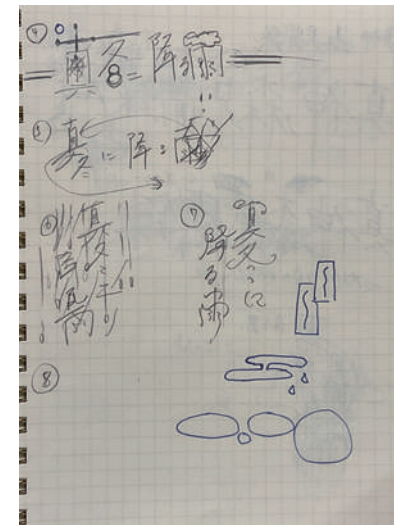 ④
真冬に降る雨
⑤
真冬に降る雨
⑥
真冬に
降る雨
⑦
真冬に
降る雨
⑧